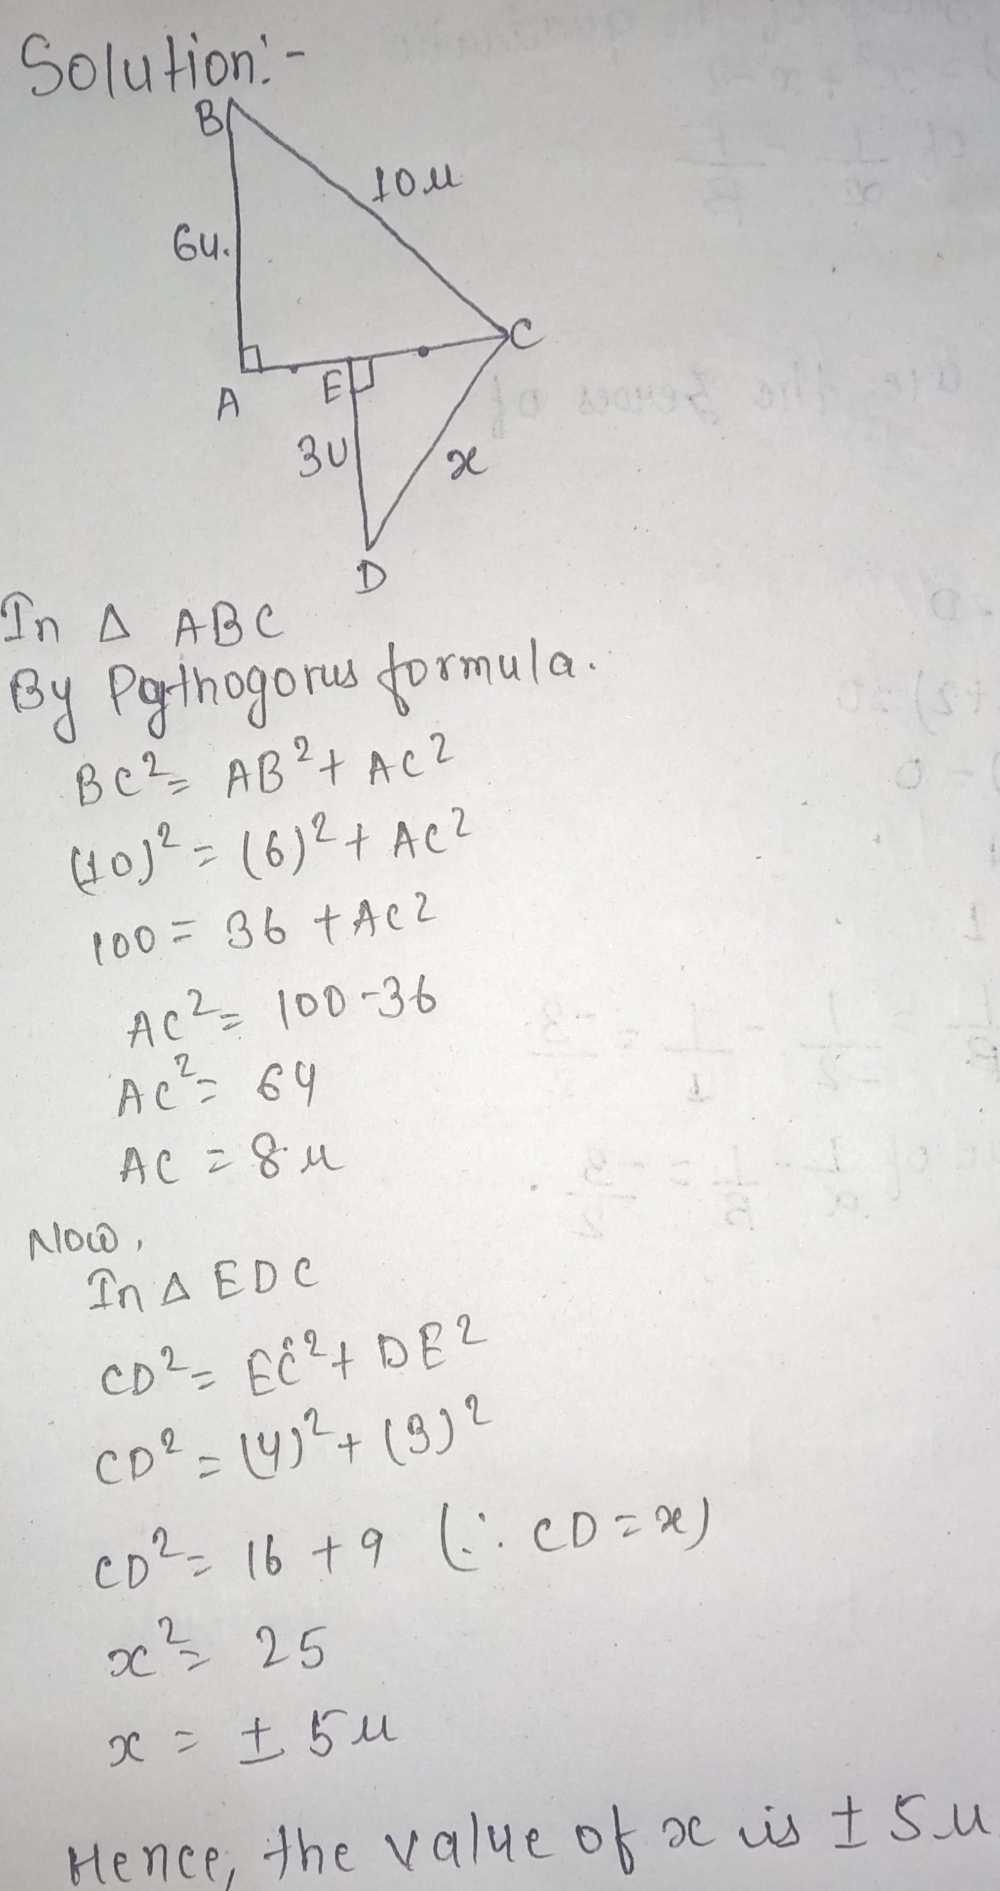 Solution:-
B
10u
6u.
C
A
E
3u
x
D
In Δ ABC
By Pythogorus formula.
BC² = AB² + AC²
(10)² = (6)² + AC²
100 = 36 + AC²
AC² = 100-36
AC² = 64
AC = 8u
Now,
In Δ EDC
CD² = EC² + DE²
CD² = (4)² + (3)²
CD² = 16 + 9 (∵ CD = x)
x² = 25
x = ± 5u
Hence, the value of x is ± 5u